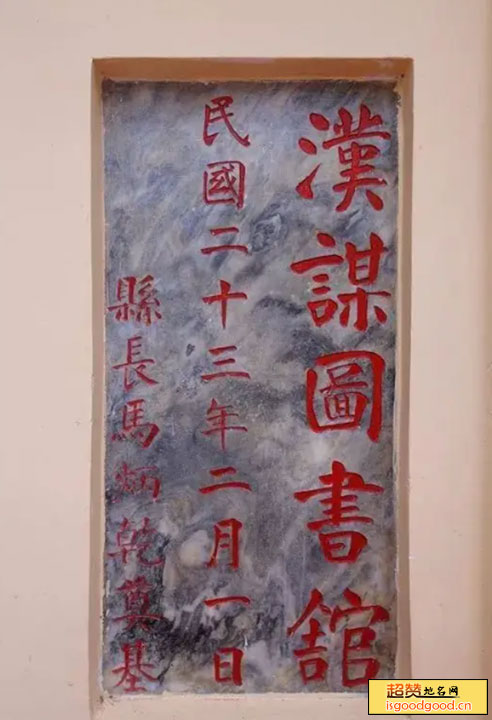 漢謀圖書館
民國二十三年二月一日
縣長馬炳乾奠基
超赞地名网
isgoodgood.cn